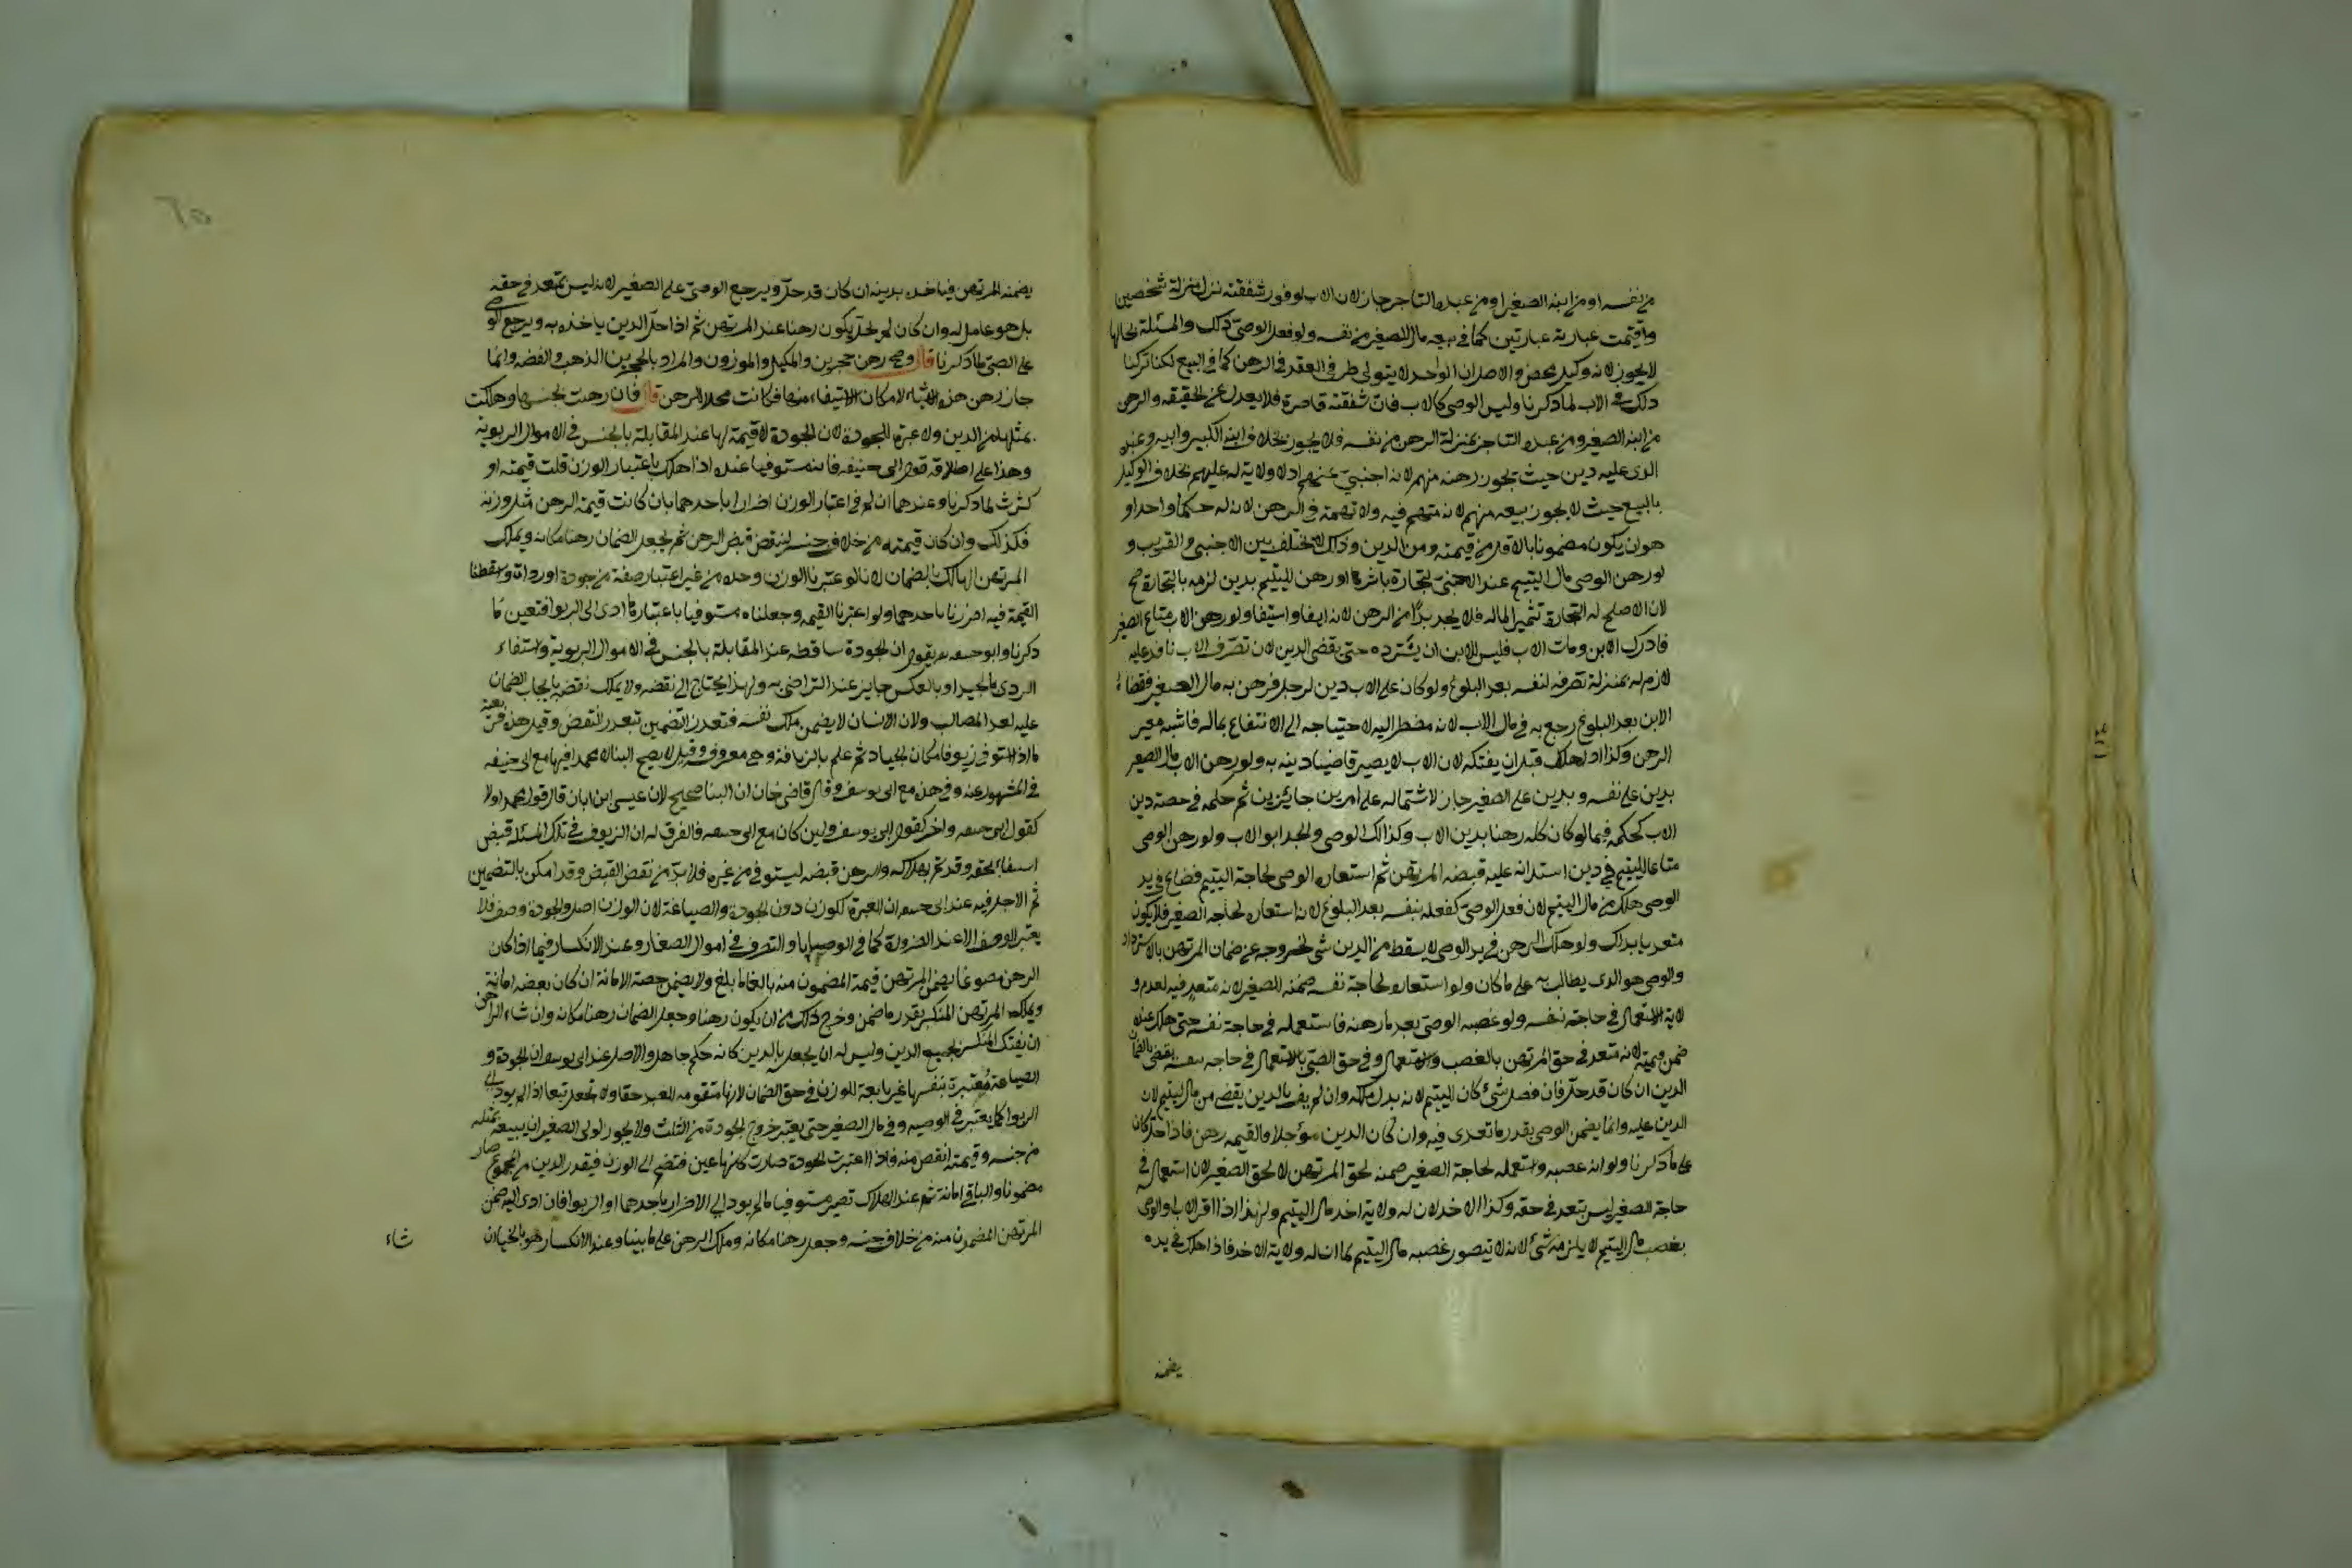 من نفسه او من ابنه الصغير او من عبده التاجر جاز لان الاب لوفور شفقته نزل منزلة شخصين
واقيمت عبارته عبارتين كما في بيعه مال الصغير من نفسه ولو فعل الوصي ذلك والمسئلة بحالها
لا يجوز لانه وكيل محض والاصل ان الواحد لا يتولى طرفي العقد في الرهن كما في البيع لكنا تركنا
ذلك في الاب لما ذكرنا وليس الوصي كالاب فان شفقته قاصرة فلا يعدل عن الحقيقه والرهن
من ابنه الصغير ومن عبده التاجر بمنزلة الرهن من نفسه فلا يجوز بخلاف ابنه الكبير وابيه وعبده
الذى عليه دين حيث يجوز رهنه منهم لانه اجنبي عنهم اذ لا ولاية له عليهم بخلاف الوكيل
بالبيع حيث لا يجوز بيعه منهم لانه متهم فيه ولا تهمة في الرهن لان له حكما واحدا و
هو ان يكون مضمونا بالاقل من قيمته ومن الدين وذلك لا يختلف بين الاجنبي والقريب و
لو رهن الوصي مال اليتيم عند الاجنبي بتجارة باشرها او رهن لليتيم بدين لزمه بالتجارة صح
لان الاصلح له التجارة تثميرا لماله فلا يجد بدا من الرهن لانه ايفا واستيفا ولو رهن الاب متاع الصغير
فادرك الابن ومات الاب فليس للابن ان يسترده حتى يقضى الدين لان تصرف الاب نافذ عليه
لازم له بمنزلة تصرفه لنفسه بعد البلوغ ولو كان على الاب دين لرجل فرهن به مال الصغير فقضاه
الابن بعد البلوغ رجع به في مال الاب لانه مضطر اليه لاحتياجه الى الانتفاع بماله فاشبه معير
الرهن وكذا اذا هلك قبل ان يفتكه لان الاب لا يصير قاضيا دينه به ولو رهن الاب مال الصغير
بدين على نفسه وبدين على الصغير جاز لاشتماله على امرين جايزين ثم حكمه في حصة دين
الاب كحكمه فيما لو كان كله رهنا بدين الاب وكذلك الوصي والجد ابو الاب ولو رهن الوصي
متاعا لليتيم في دين استدانه عليه قبضه المرتهن ثم استعاره الوصي لحاجة اليتيم فضاع في يد
الوصي هلك من مال اليتيم لان فعل الوصي كفعله بنفسه بعد البلوغ لانه استعاره لحاجه الصغير فلا يكون
متعديا بذلك ولو هلك الرهن في يد الوصي لا يسقط من الدين شى لخروجه عن ضمان المرتهن بالاسترداد
والوصي هو الذى يطالب به على ما كان ولو استعاره لحاجة نفسه ضمنه للصغير لانه متعد فيه لعدم و
لاية الاستعمال في حاجة نفسه ولو غصبه الوصي بعد ما رهنه فاستعمله في حاجة نفسه حتى هلك عنده
ضمن قيمته لانه متعد في حق المرتهن بالغصب والاستعمال وفي حق الصبي بالاستعمال في حاجه نفسه يقضي بالضمان
الدين ان كان قد حل فان فضل شئ كان لليتيم لانه بدل ملكه وان لم يف بالدين يقضى من مال اليتيم لان
الدين عليه وانما يضمن الوصي بقدر ما تعدى فيه وان كان الدين مؤجلا والقيمه رهن فاذا حل كان
على ما ذكرنا ولو انه غصبه واستعمله لحاجة الصغير ضمنه لحق المرتهن لا لحق الصغير لان استعماله في
حاجة الصغير ليس بتعد في حقه وكذا الاخذ لان له ولاية اخذ مال اليتيم ولهذا اذا اقر الاب او الوصي
بغصب مال اليتيم لا يلزمه شئ لانه لا يتصور غصبه مال اليتيم لما ان له ولاية الاخذ فاذا هلك في يده
يضمنه
يضمنه للمرتهن فياخذه بدينه ان كان قد حل ويرجع الوصي على الصغير لانه ليس بمتعد في حقه
بل هو عامل له وان كان لم يحل يكون رهنا عند المرتهن ثم اذا حل الدين ياخذه به ويرجع الوصي
على الصبي لما ذكرنا قال وصح رهن حجرين والمكيل والموزون والمراد بالحجرين الذهب والفضه وانما
جاز رهن هذه الاشياء لامكان الاستيفاء منها فكانت محلا للرهن قال فان رهنت بجنسها وهلكت
بمثلها من الدين ولا عبرة للجودة لان الجودة لا قيمة لها عند المقابلة بالجنس في الاموال الربوية
وهذا على اطلاقه قول ابى حنيفه فانه مستوفيا عنده اذا هلك باعتبار الوزن قلت قيمته او
كثرت لما ذكرنا وعندهما ان لم في اعتبار الوزن اضرارا باحدهما بان كانت قيمة الرهن مثل وزنه
فكذلك وان كان قيمته من خلاف جنسه لينقض قبض الرهن ثم يجعل الضمان رهنا مكانه ويملك
المرتهن الهالك بالضمان لانا لو اعتبرنا الوزن وحده من غير اعتبار صفة من جودة او رداة واسقطنا
القيمة فيه اضررنا باحدهما ولو اعتبرنا القيمه وجعلناه مستوفيا باعتبارها ادى الى الربوا فتعين ما
ذكرنا وابو حنيفه يقول ان الجودة ساقطه عند المقابلة بالجنس في الاموال الربوية واستيفاء
الردى بالجيد او بالعكس جايز عند التراضى به ولهذا يحتاج الى نقضه ولا يملك نقضه بايجاب الضمان
عليه لعدم المطالب ولان الانسان لا يضمن ملك نفسه فتعذر التضمين بتعذر النقض وقيل هذه فرعية
ما اذا استوفى زيوفا مكان الجياد ثم علم بالزيافة وهي معروفه وقيل لا يصح البنا لان محمدا فيها مع ابي حنيفه
في المشهور عنه وفي هذه مع ابى يوسف وقال قاضي خان ان البنا صحيح لان عيسى ابن ابان قال قول محمد اولا
كقول ابى حنيفه واخرا كقول ابى يوسف ولين كان مع ابى حنيفه فالفرق له ان الزيوف في تلك المسئلة قبض
استيفاء لحقه وقد تم بهلاكه والرهن قبضه ليستوفى من غيره فلا بد من نقض القبض وقد امكن بالتضمين
ثم الاصل فيه عند ابى حنيفه ان العبرة للوزن دون الجودة والصياغة لان الوزن اصل والجودة وصف فلا
يعتبر الوصف الا عند الضرورة كما في الوصايا والتصرف في اموال الصغار وعند الانكسار فيما اذا كان
الرهن مصوغا يضمن المرتهن قيمة المضمون منه بالغا ما بلغ ولا يضمن حصة الامانة ان كان بعضه امانة
ويملك المرتهن المنكسر بقدر ما ضمن وخرج ذلك من ان يكون رهنا وجعل الضمان رهنا مكانه وان شاء الراهن
ان يفتك المنكسر بجميع الدين وليس له ان يجعل بالدين كانه حكم جاهلي والاصل عند ابى يوسف ان الجودة و
الصياغة معتبرة بنفسها غير تابعة للوزن في حق الضمان لانها متقومه للعبد حقا ولا تجعل تبعا اذا لم يود الى
الربوا كما يعتبر في الوصيه وفي مال الصغير حتى يعتبر خروج الجودة من الثلث ولا يجوز لولي الصغير ان يبيعه بمثله
من جنسه وقيمته انقص منه فاذا اعتبرت الجودة صارت كانها عين فتضم الى الوزن فيقدر الدين من المجموع صار
مضمونا والباقي امانة ثم عند الهلاك تصير مستوفيا ما لم يود الى الاضرار باحدهما او الربوا فان ادى اليه ضمن
المرتهن المضمون منه من خلاف جنسه وجعل رهنا مكانه وملك الرهن على ما بينا وعند الانكسار هو بالخيار ان
شاء